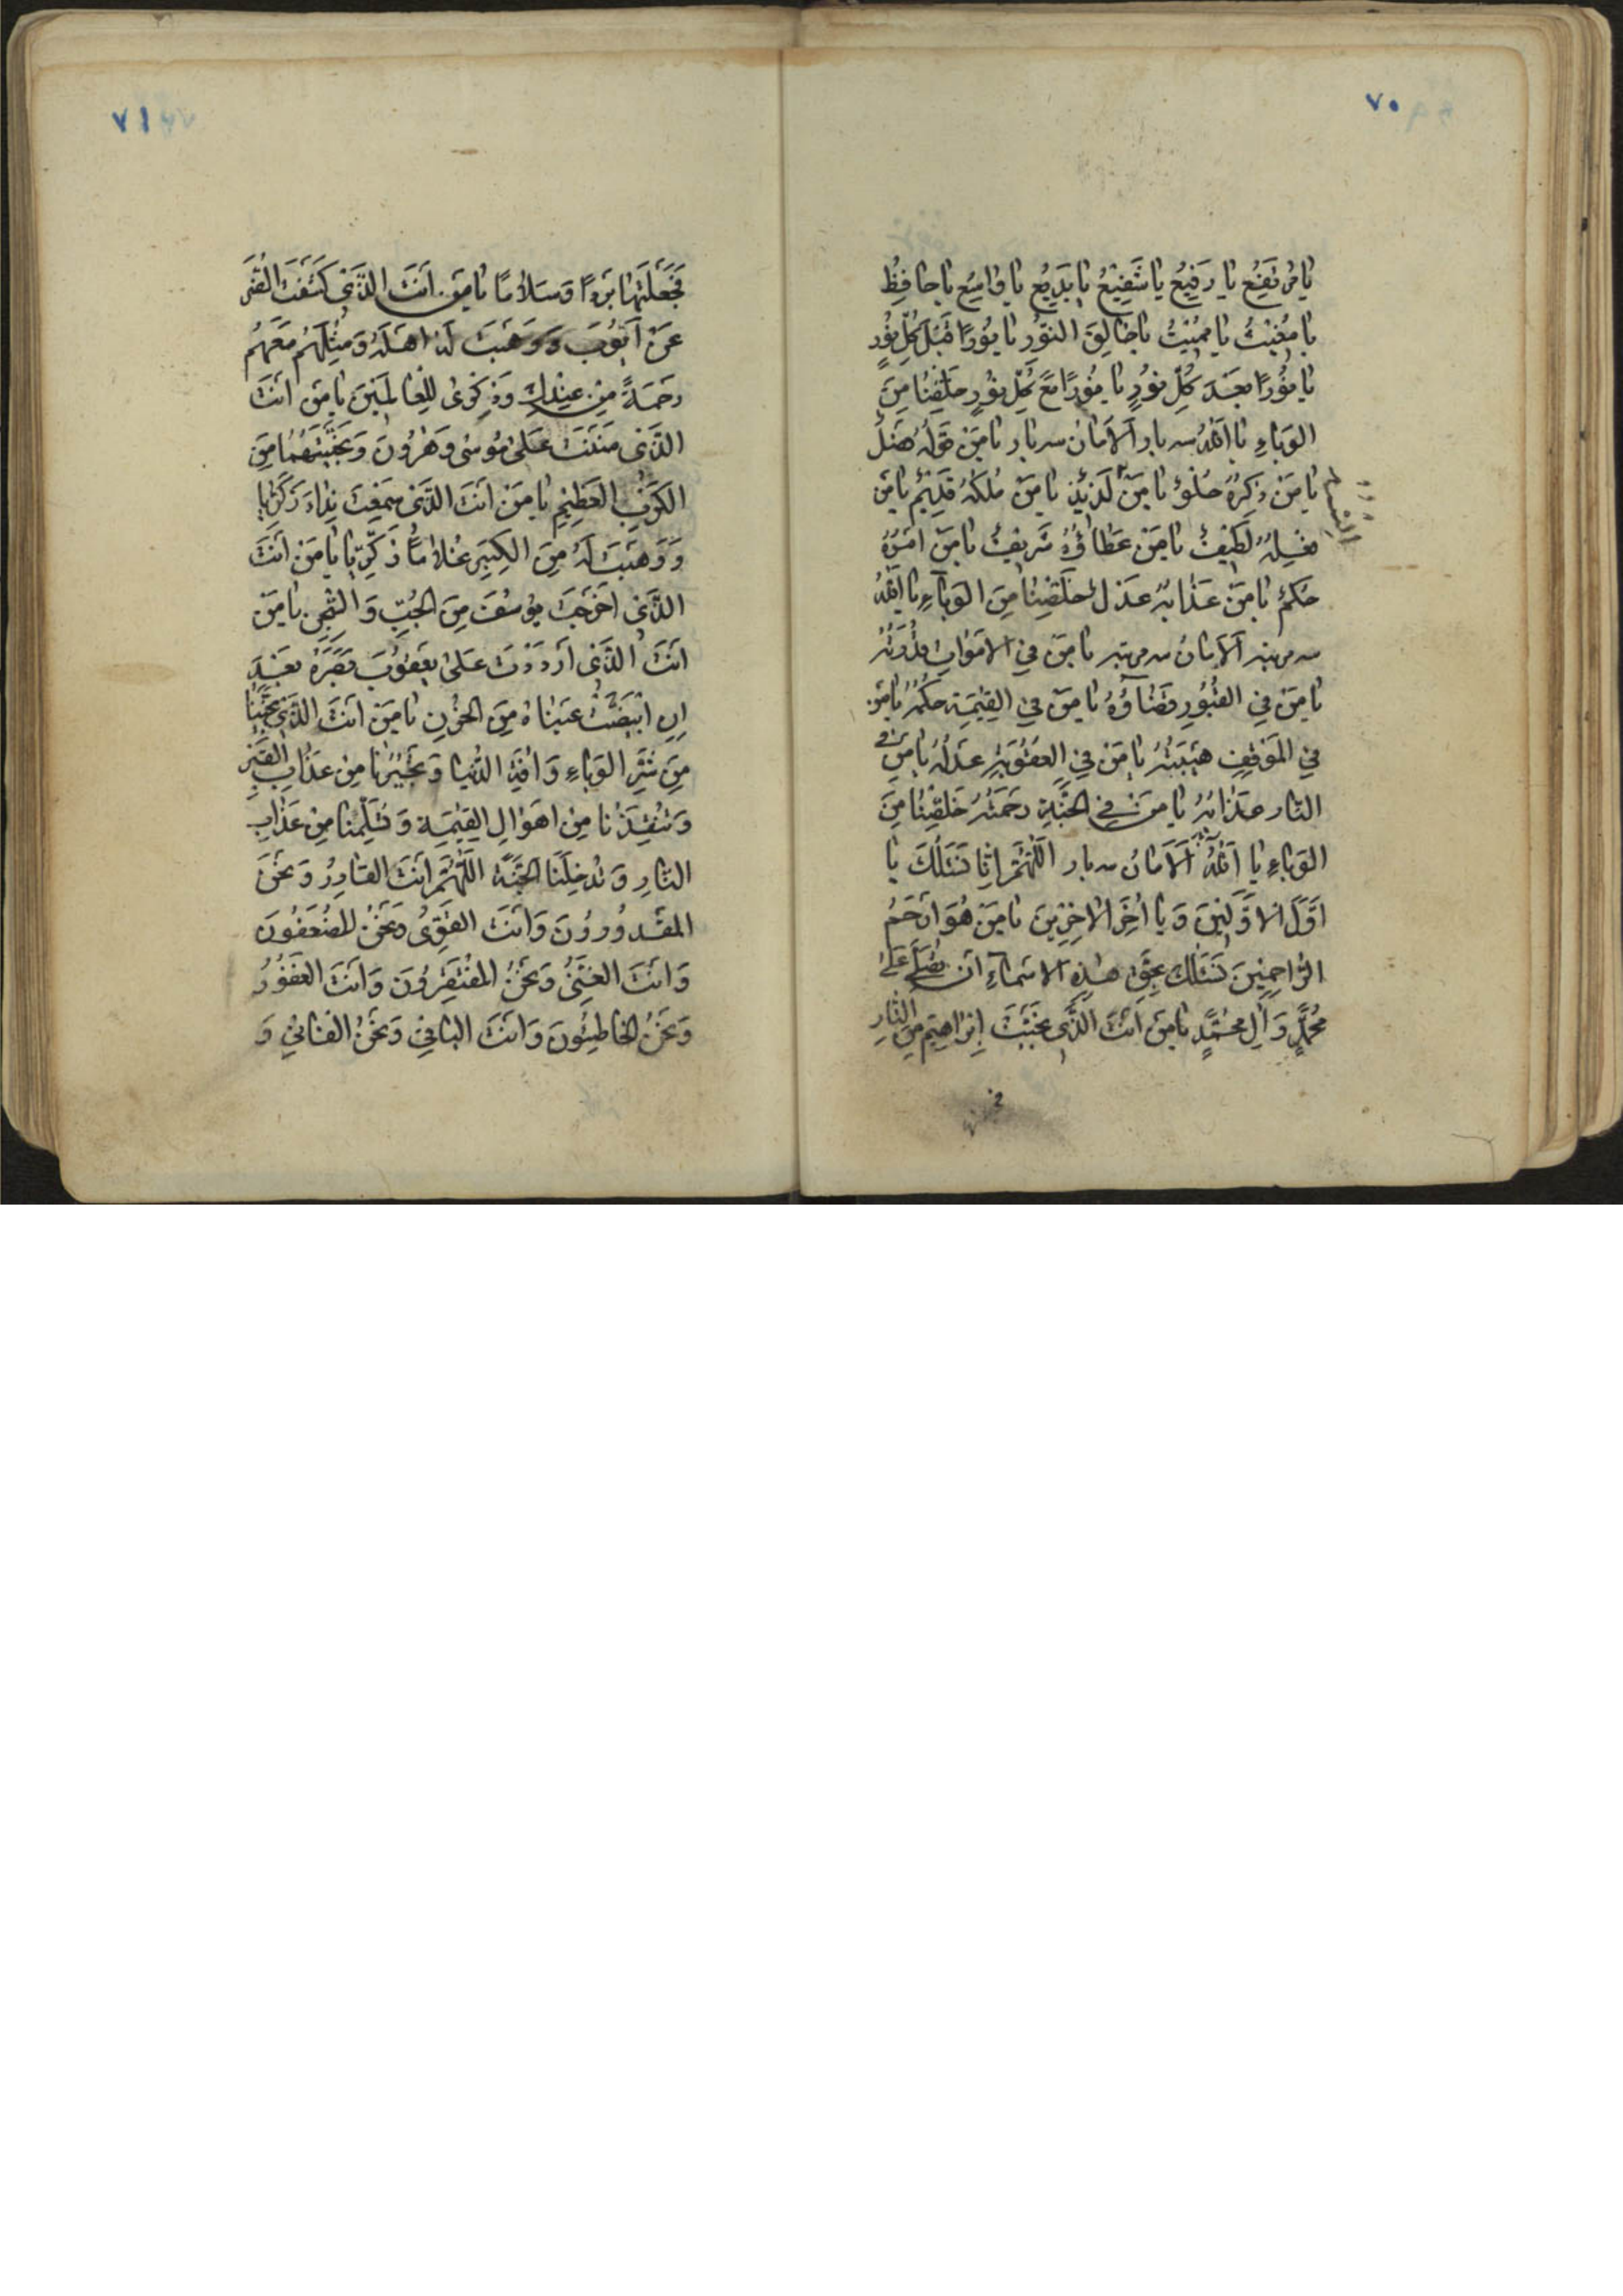 ٧٠
يا مُرتَفِعُ يا رَفِيعُ يا شَفِيعُ يا بَدِيعُ يا واسِعُ يا حافِظُ
يا مُغيثُ يا مُميتُ يا خالِقَ النّورِ يا نُورًا قَبلَ كُلِّ نُورٍ
يا نُورًا بَعدَ كُلِّ نُورٍ يا نُورًا مَعَ كُلِّ نُورٍ خَلِّصْنا مِنَ
الوَباءِ يا اَللّٰهُ سه بار اَلاَمانُ سه بار يا مَنْ قَولُهُ فَضلٌ
يا مَنْ ذِكرُهُ حُلوٌ يا مَنْ لَذيذٌ يا مَنْ مُلكُهُ قَديمٌ يا مَن
فِعلُهُ لَطيفٌ يا مَنْ عَطاؤُهُ شَريفٌ يا مَنْ اَمرُهُ
حُكمٌ يا مَنْ عَذابُهُ عَدلٌ خَلِّصْنا مِنَ الوَباءِ يا اَللّٰهُ
سه مرتبه اَلاَمانُ سه مرتبه يا مَن فِي الاَمواتِ قُدرَتُهُ
يا مَن فِي القُبُورِ قَضاؤُهُ يا مَن فِي القِيٰمَةِ حُكمُهُ يا مَن
فِي المَوقِفِ هَيبَتُهُ يا مَن فِي العُقُوبَةِ عَدلُهُ يا مَن فى
النّارِ عَذابُهُ يا مَن فِي الجَنَّةِ رَحمَتُهُ خَلِّصْنا مِنَ
الوَباءِ يا اَللّٰهُ اَلاَمانُ سه بار اَللّٰهُمَّ اِنّا نَسئَلُكَ يا
اَوَّلَ الاَوَّلينَ وَ يا اٰخِرَ الاٰخِرينَ يا مَن هُوَ اَرحَمُ
الرّاحِمينَ نَسئَلُكَ بِحَقِّ هٰذِهِ الاَسماءِ اَن تُصَلِّىَ عَلىٰ
مُحَمَّدٍ وَ اٰلِ مُحَمَّدٍ يا مَن اَنتَ الَّذى نَجَّيتَ اِبراهيمَ مِنَ النّارِ
٧١
فَجَعَلتَها بَردًا وَ سَلامًا يا مَن اَنتَ الَّذى كَشَفتَ الضُّرَّ
عَن اَيّوُبَ وَ وَهَبتَ لَهُ اَهلَهُ وَ مِثلَهُم مَعَهُم
رَحمَةً مِن عِندِكَ وَ ذِكرىٰ لِلعالَمينَ يا مَن اَنتَ
الَّذى مَنَنتَ عَلىٰ مُوسىٰ وَ هٰرُونَ وَ نَجَّيتَهُما مِنَ
الكَربِ العَظيمِ يا مَن اَنتَ الَّذى سَمِعتَ نِداءَ زَكَرِيّا
وَ وَهَبتَ لَهُ مِنَ الكِبَرِ غُلامًا ذَكِرِيّا يا مَن اَنتَ
الَّذى اَخرَجتَ يوُسُفَ مِنَ الجُبِّ وَ السِّجنِ يا مَن
اَنتَ الَّذى اَردَدتَ عَلىٰ يَعقوُبَ بَصَرَهُ بَعدَ
اِنِ ابيَضَّت عَيناهُ مِنَ الحُزنِ يا مَن اَنتَ الَّذى نَجَّينا
مِن شَرِّ الوَباءِ وَ اٰفَةِ الدُّنيا وَ تُجيرُنا مِن عَذابِ القَبرِ
وَ تُنقِذُنا مِن اَهوالِ القِيٰمَةِ وَ تُسَلِّمُنا مِن عَذابِ
النّارِ وَ تُدخِلُنَا الجَنَّةَ اَللّٰهُمَّ اَنتَ القادِرُ وَ نَحنُ
المَقدوُروُنَ وَ اَنتَ القَوِىُّ وَ نَحنُ المُضعَفوُنَ
وَ اَنتَ الغَنِىُّ وَ نَحنُ المُفتَقِروُنَ وَ اَنتَ الغَفوُرُ
وَ نَحنُ الخاطِئوُنَ وَ اَنتَ الباقي وَ نَحنُ الفاني وَ